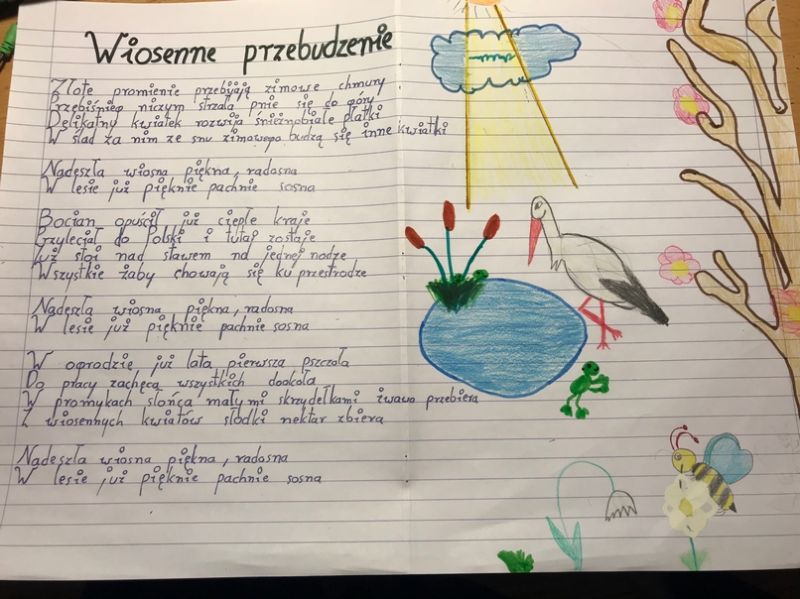 Wiosenne przebudzenie
Złote promienie przebijają zimowe chmury
Przebiśnieg niczym strzała pnie się do góry
Delikatny kwiatek rozwija śnieżnobiałe płatki
W ślad za nim ze snu zimowego budzą się inne kwiatki
Nadeszła wiosna piękna, radosna
W lesie już pięknie pachnie sosna
Bocian opuścił już ciepłe kraje
Przyleciał do Polski i tutaj zostaje
Już stoi nad stawem na jednej nodze
Wszystkie żaby chowają się ku przestrodze
Nadeszła wiosna piękna, radosna
W lesie już pięknie pachnie sosna
W ogrodzie już lata pierwsza pszczoła
Do pracy zachęca wszystkich dookoła
W promykach słońca małymi skrzydełkami żwawo przebiera
Z wiosennych kwiatów słodki nektar zbiera
Nadeszła wiosna piękna, radosna
W lesie już pięknie pachnie sosna